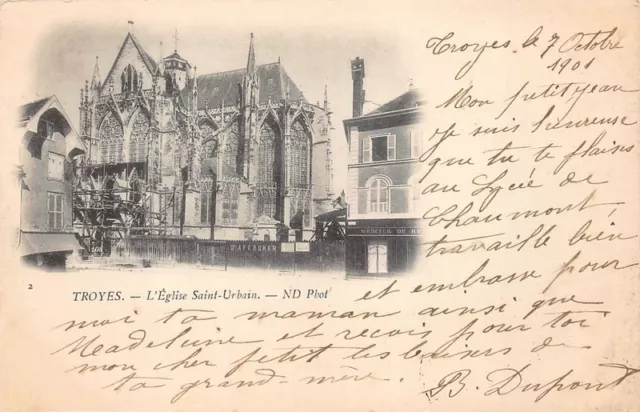 Troyes, le 7 Octobre
1901
Mon petit Jean
je suis heureuse
que tu te plaises
au Lycée de
Chaumont,
travaille bien
et embrasse pour
moi ta maman ainsi que
Madeleine et reçois pour toi
mon cher petit les baisers de
ta grand-mère.
B. Dupont
2
TROYES. — L'Église Saint-Urbain. — ND Phot